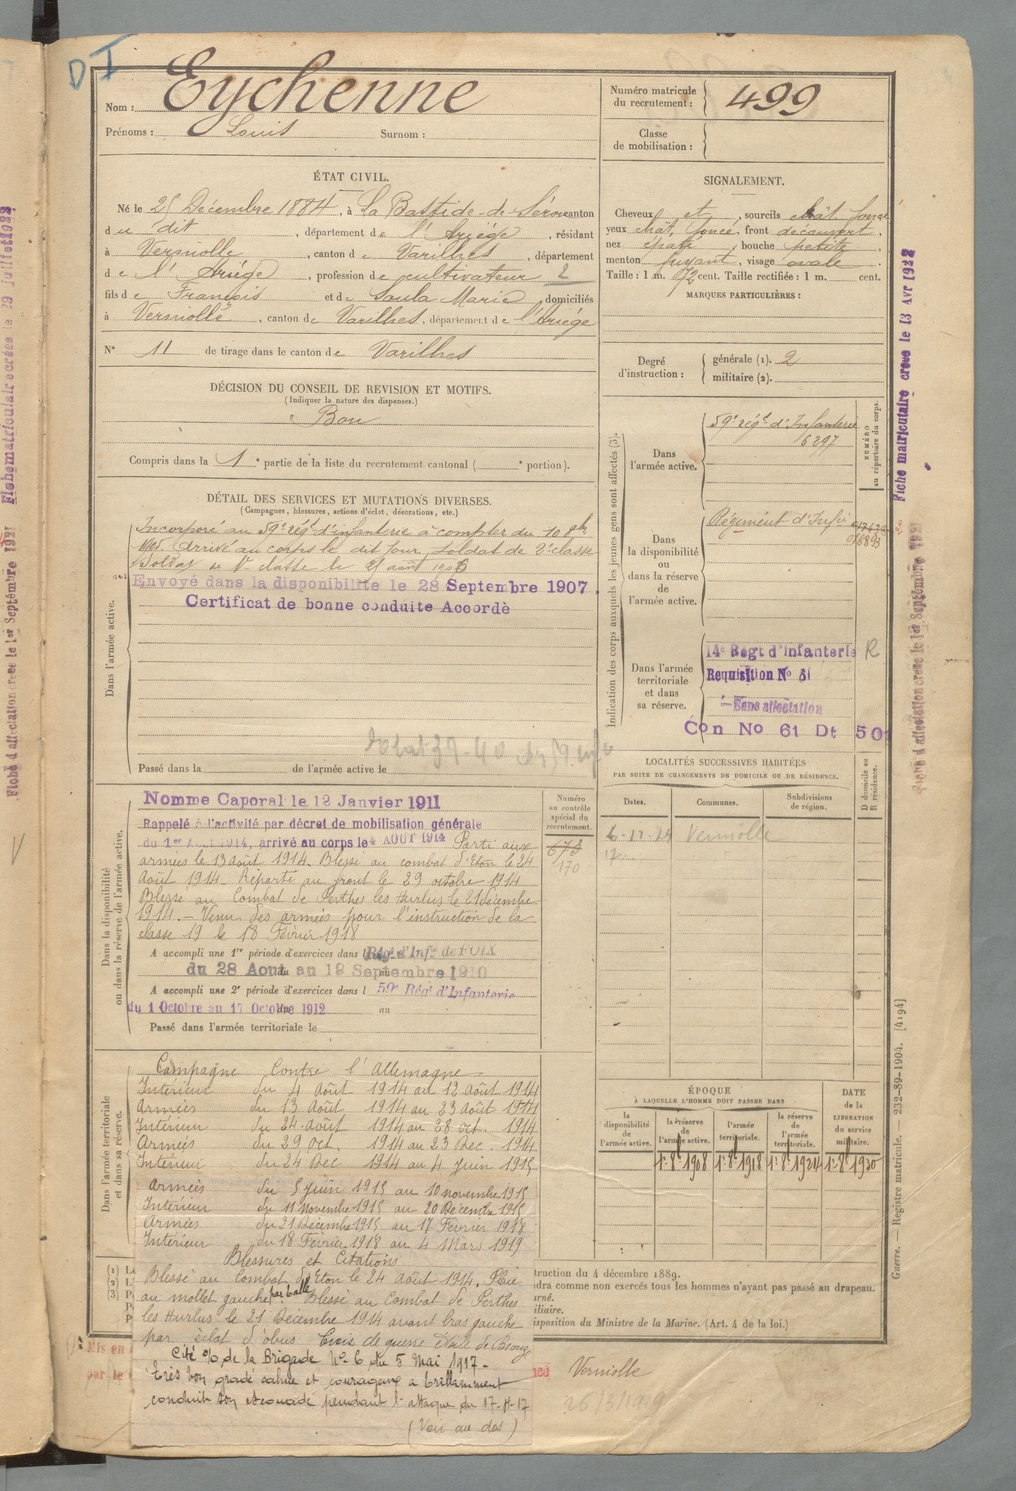 D I
Nom : Eychenne
Prénoms : Louis Surnom :
Numéro matricule
du recrutement : 499
Classe
de mobilisation :
ÉTAT CIVIL.
Né le 25 Décembre 1884, à La Bastide-de-Sérou canton
du dit, département de l'Ariège, résidant
à Verniolle, canton de Varilhes, département
de l'Ariège, profession de cultivateur 2
fils de François et de Soula Marie, domiciliés
à Verniolle, canton de Varilhes, département de l'Ariège
N° 11 de tirage dans le canton de Varilhes
DÉCISION DU CONSEIL DE REVISION ET MOTIFS.
(Indiquer la nature des dispenses.)
Bon
Compris dans la 1e partie de la liste du recrutement cantonal ( e portion).
SIGNALEMENT.
Cheveux et, sourcils chât. foncé
yeux chât. foncé, front découvert,
nez épaté, bouche petite,
menton fuyant, visage ovale.
Taille : 1 m. 72 cent. Taille rectifiée : 1 m. cent.
MARQUES PARTICULIÈRES :
Degré
d'instruction :
générale (1). 2
militaire (2).
DÉTAIL DES SERVICES ET MUTATIONS DIVERSES.
(Campagnes, blessures, actions d'éclat, décorations, etc.)
Dans l'armée active.
Incorporé au 59e régt d'infanterie à compter du 10 8bre
1905. Arrivé au corps le dit jour, soldat de 2e classe
Soldat de 1e classe le août 1906
Envoyé dans la disponibilité le 28 Septembre 1907.
Certificat de bonne conduite Accordé
Passé dans la de l'armée active le
Indication des corps auxquels les jeunes gens sont affectés (3).
Dans
l'armée active.
59e régt d'Infanterie
6297
NUMÉRO
au répertoire du corps.
Dans
la disponibilité
ou
dans la réserve
de
l'armée active.
Régiment d'Infie
Dans l'armée
territoriale
et dans
sa réserve.
14e Regt d'Infanterie R
Requisition N° 31
Sans affectation
Con No 61 Dt 50
Dans la disponibilité
ou dans la réserve de l'armée active.
Nommé Caporal le 12 Janvier 1911
Rappelé à l'activité par décret de mobilisation générale
du 1er Aout 1914, arrivé au corps le 4 AOUT 1914 Parti aux
armées le 13 août 1914. Blessé au combat d'Eton le 24
Août 1914. Réparti au front le 29 octobre 1914
Blessé au Combat de Perthes les Hurlus le 21 décembre
1914. – Venu des armées pour l'instruction de la
classe 19 le 18 Février 1918
A accompli une 1re période d'exercices dans l Régt d'Infie de FOIX
du 28 Aout au 19 Septembre 1910
A accompli une 2e période d'exercices dans l 59e Régt d'Infanterie
du 1 Octobre au 17 Octobre 1912 au
Passé dans l'armée territoriale le
Numéro
au contrôle
spécial du
recrutement.
170
LOCALITÉS SUCCESSIVES HABITÉES
PAR SUITE DE CHANGEMENTS DE DOMICILE OU DE RÉSIDENCE.
Dates. Communes. Subdivisions
de région.
D domicile ou
R résidence.
Verniolle
Dans l'armée territoriale
et dans sa réserve.
Campagne Contre l'Allemagne
Intérieur du 4 Août 1914 au 12 Août 1914
Armées du 13 août 1914 au 23 août 1914
Intérieur du 24 août 1914 au 28 oct. 1914
Armées du 29 Oct. 1914 au 23 Dec. 1914
Intérieur du 24 Dec 1914 au 4 juin 1915
Armées du 5 juin 1915 au 10 novembre 1915
Intérieur du 11 Novembre 1915 au 20 Décembre 1915
Armées du 21 Décembre 1915 au 17 Février 1918
Intérieur du 18 Février 1918 au 4 Mars 1919
Blessures et Citations
Blessé au Combat d'Eton le 24 Août 1914. Plaie
au mollet gauche par balle Blessé au Combat de Perthes
les Hurlus le 21 Décembre 1914 avant bras gauche
par éclat d'obus Croix de guerre Etoile de Bronze
Cité O/ de la Brigade N° 6 du 5 Mai 1917 –
Très bon gradé calme et courageux a brillamment
conduit son escouade pendant l'attaque du 17-4-17
(Voir au dos)
ÉPOQUE
À LAQUELLE L'HOMME DOIT PASSER DANS
la
disponibilité
de
l'armée active.
la réserve
de
l'armée active.
l'armée
territoriale.
la réserve
de
l'armée
territoriale.
DATE
de la
LIBÉRATION
du service
militaire.
truction du 4 décembre 1889.
dra comme non exercés tous les hommes n'ayant pas passé au drapeau.
urné.
iliaire.
isposition du Ministre de la Marine. (Art. 4 de la loi.)
Mis en
par le
Verniolle
26/3/1919
Guerre. — Registre matricule. — 232-89-1904. [4194]
Fiche matriculaire créée le 13 Avr 1922
Fiche d'affectation créée le 1er Septembre 1921
Fiche matriculaire créée le 29 juillet 1922
Fiche d'affectation créée le 1er Septembre 1921